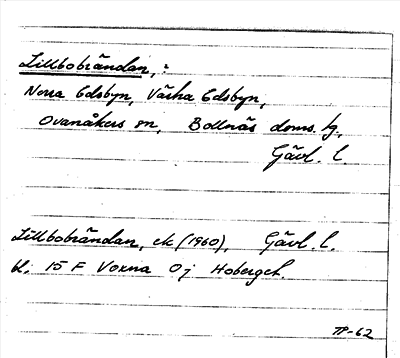 Lillbobrändan, :
Norra Edsbyn, Västra Edsbyn,
Ovanåkers sn, Bollnäs doms. hg.,
Gävl. l.
Lillbobrändan, ek (1960), Gävl. l.
bl. 15 F Voxna 0 j Hobergch.
TP-62